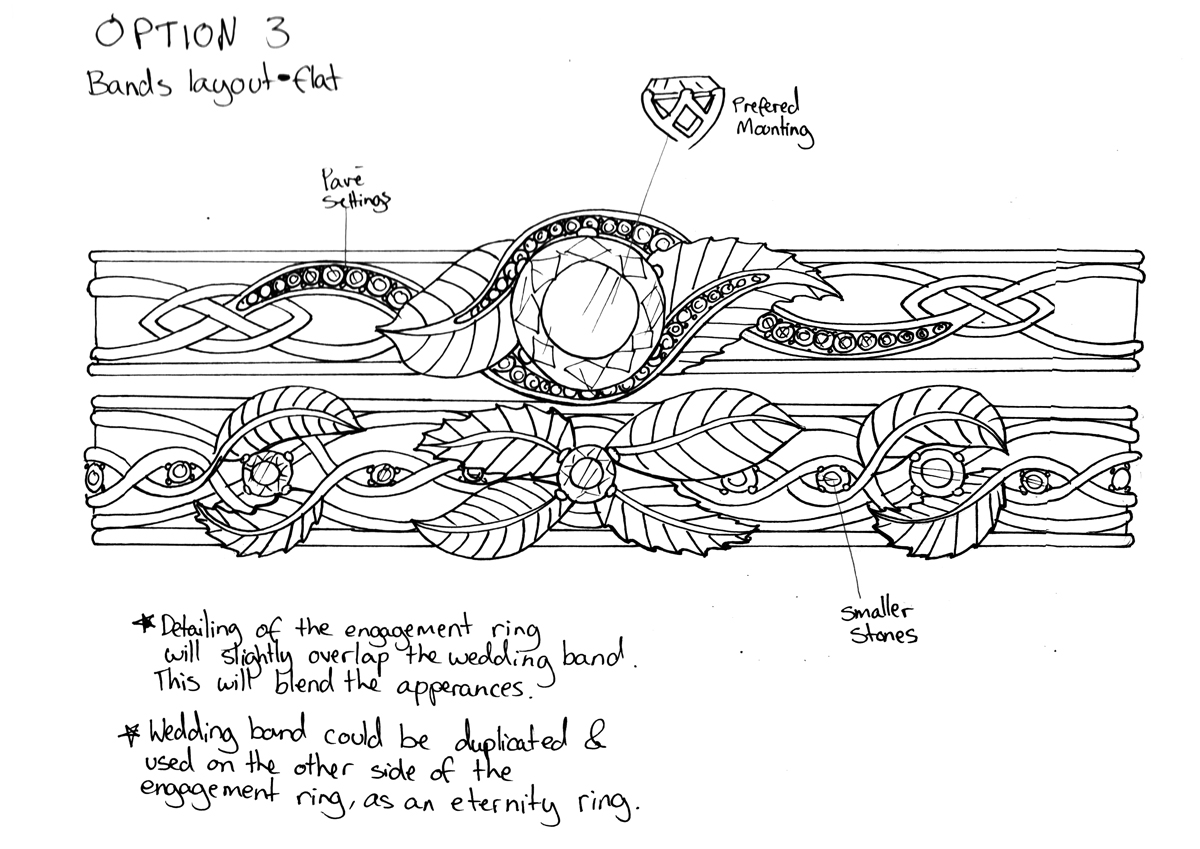 OPTION 3
Bands layout-flat
Prefered
Mounting
Pavē
Settings
Smaller
Stones
* Detailing of the engagement ring
will slightly overlap the wedding band.
This will blend the apperances.
* Wedding band could be duplicated &
used on the other side of the
engagement ring, as an eternity ring.